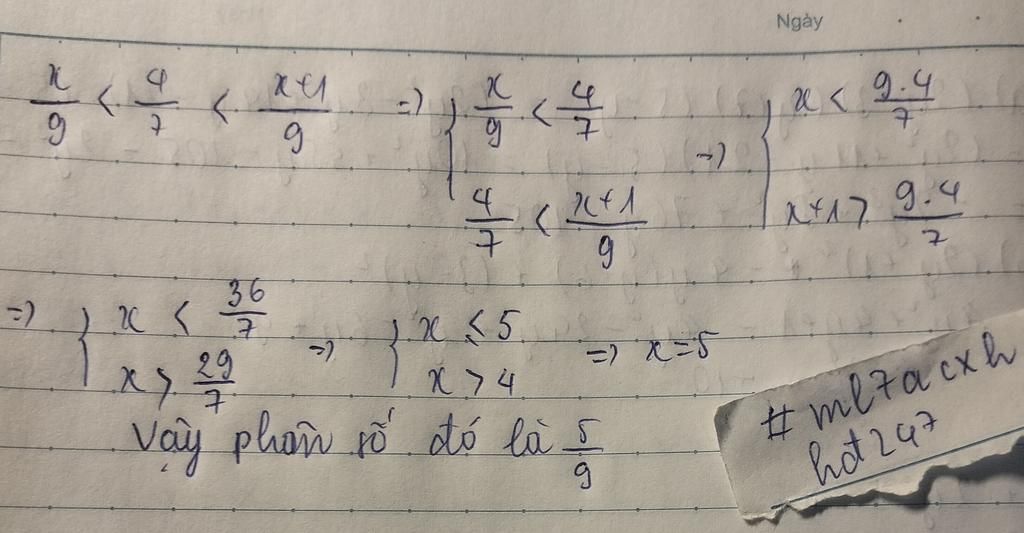 Ngày
x/9 < 4/7 < (x+1)/9 => { x/9 < 4/7 ; 4/7 < (x+1)/9 => { x < 9.4/7 ; x+1 > 9.4/7
=> { x < 36/7 ; x > 29/7 => { x ≤ 5 ; x > 4 => x = 5
Vậy phân số đó là 5/9
# ml7acxh
hdt247